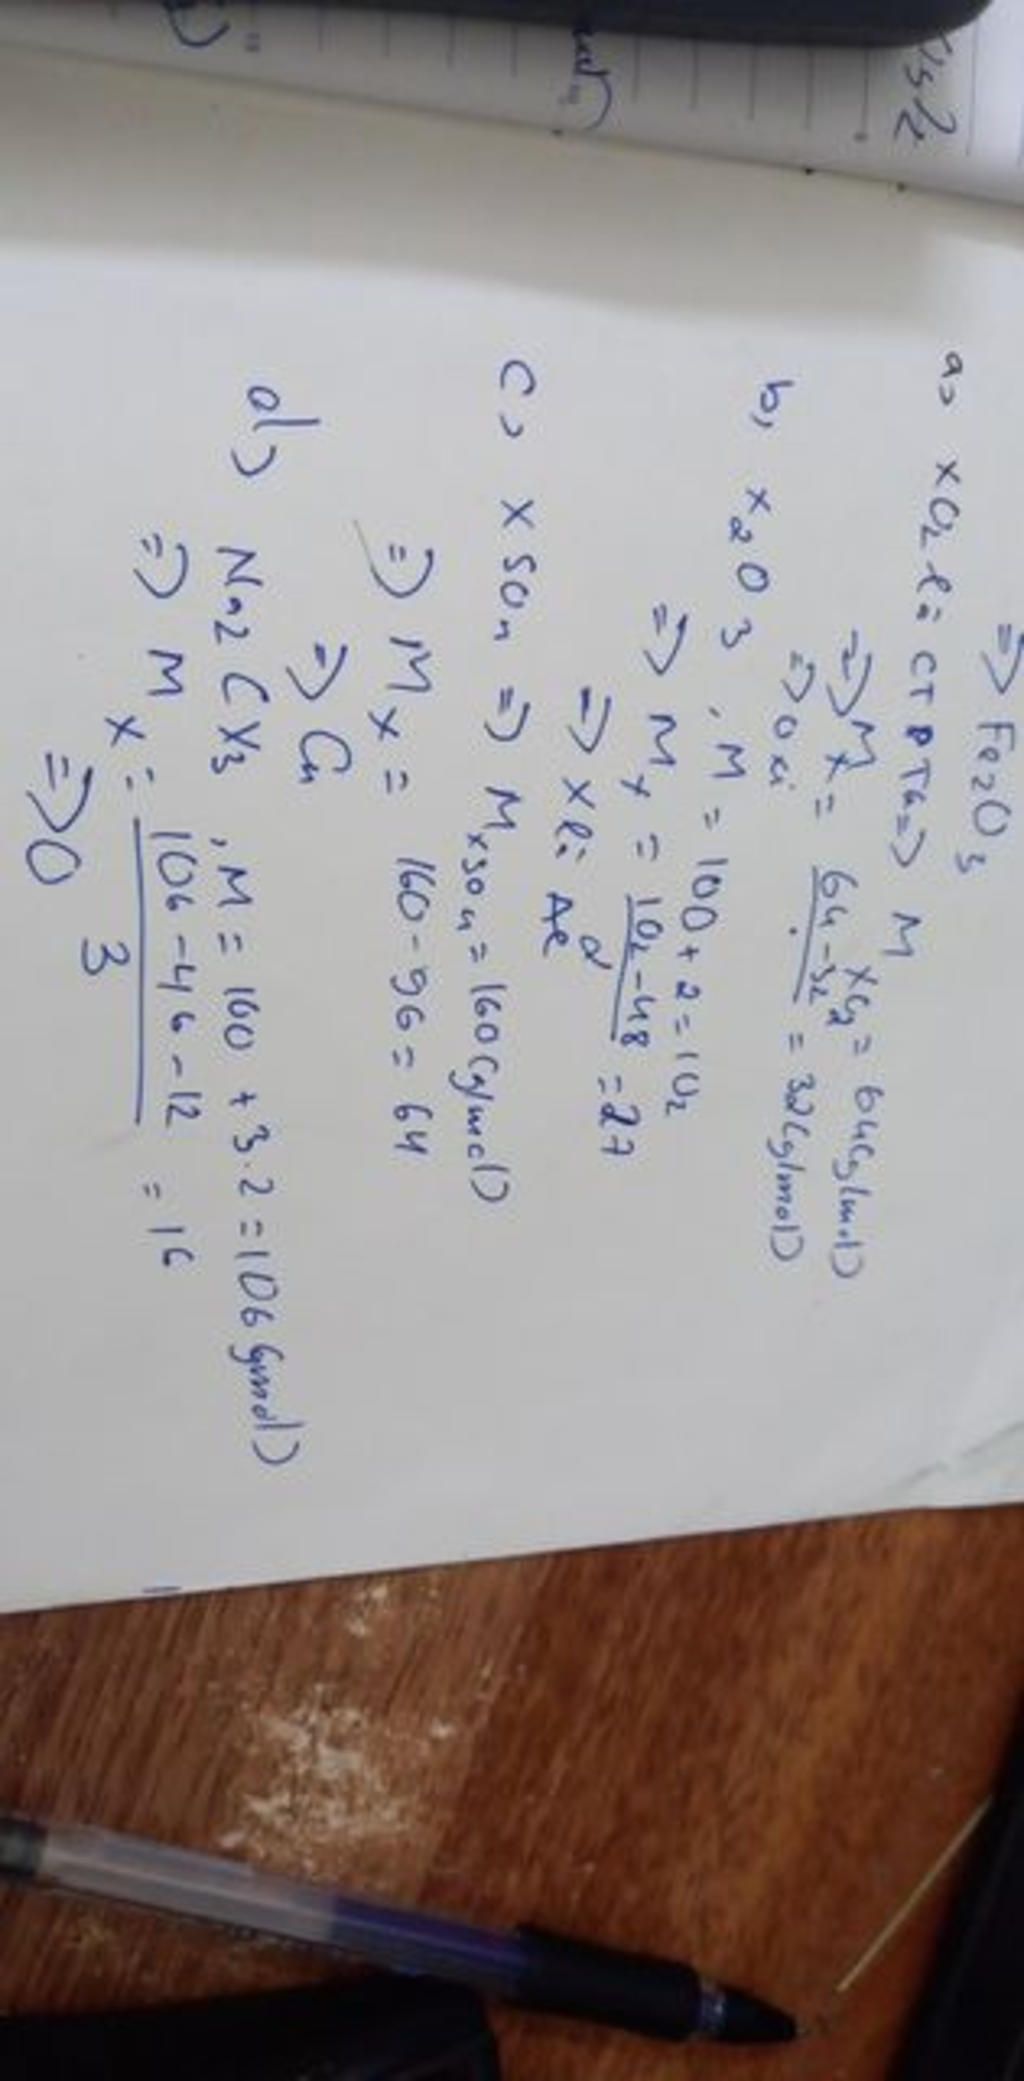 => Fe2O3
a, XO2 là CTPT => M XO2 = 64 (g/mol)
=> MX = 64 - 32 = 32 (g/mol)
=> Oxi
b, X2O3, M = 100 + 2 = 102
=> MX = 102 - 48 = 27
2
=> X là Al
c, XSO4 => MXSO4 = 160 (g/mol)
=> MX = 160 - 96 = 64
=> Cu
d) Na2CX3, M = 100 + 3.2 = 106 g/mol)
=> MX = 106 - 46 - 12 = 16
3
=> O